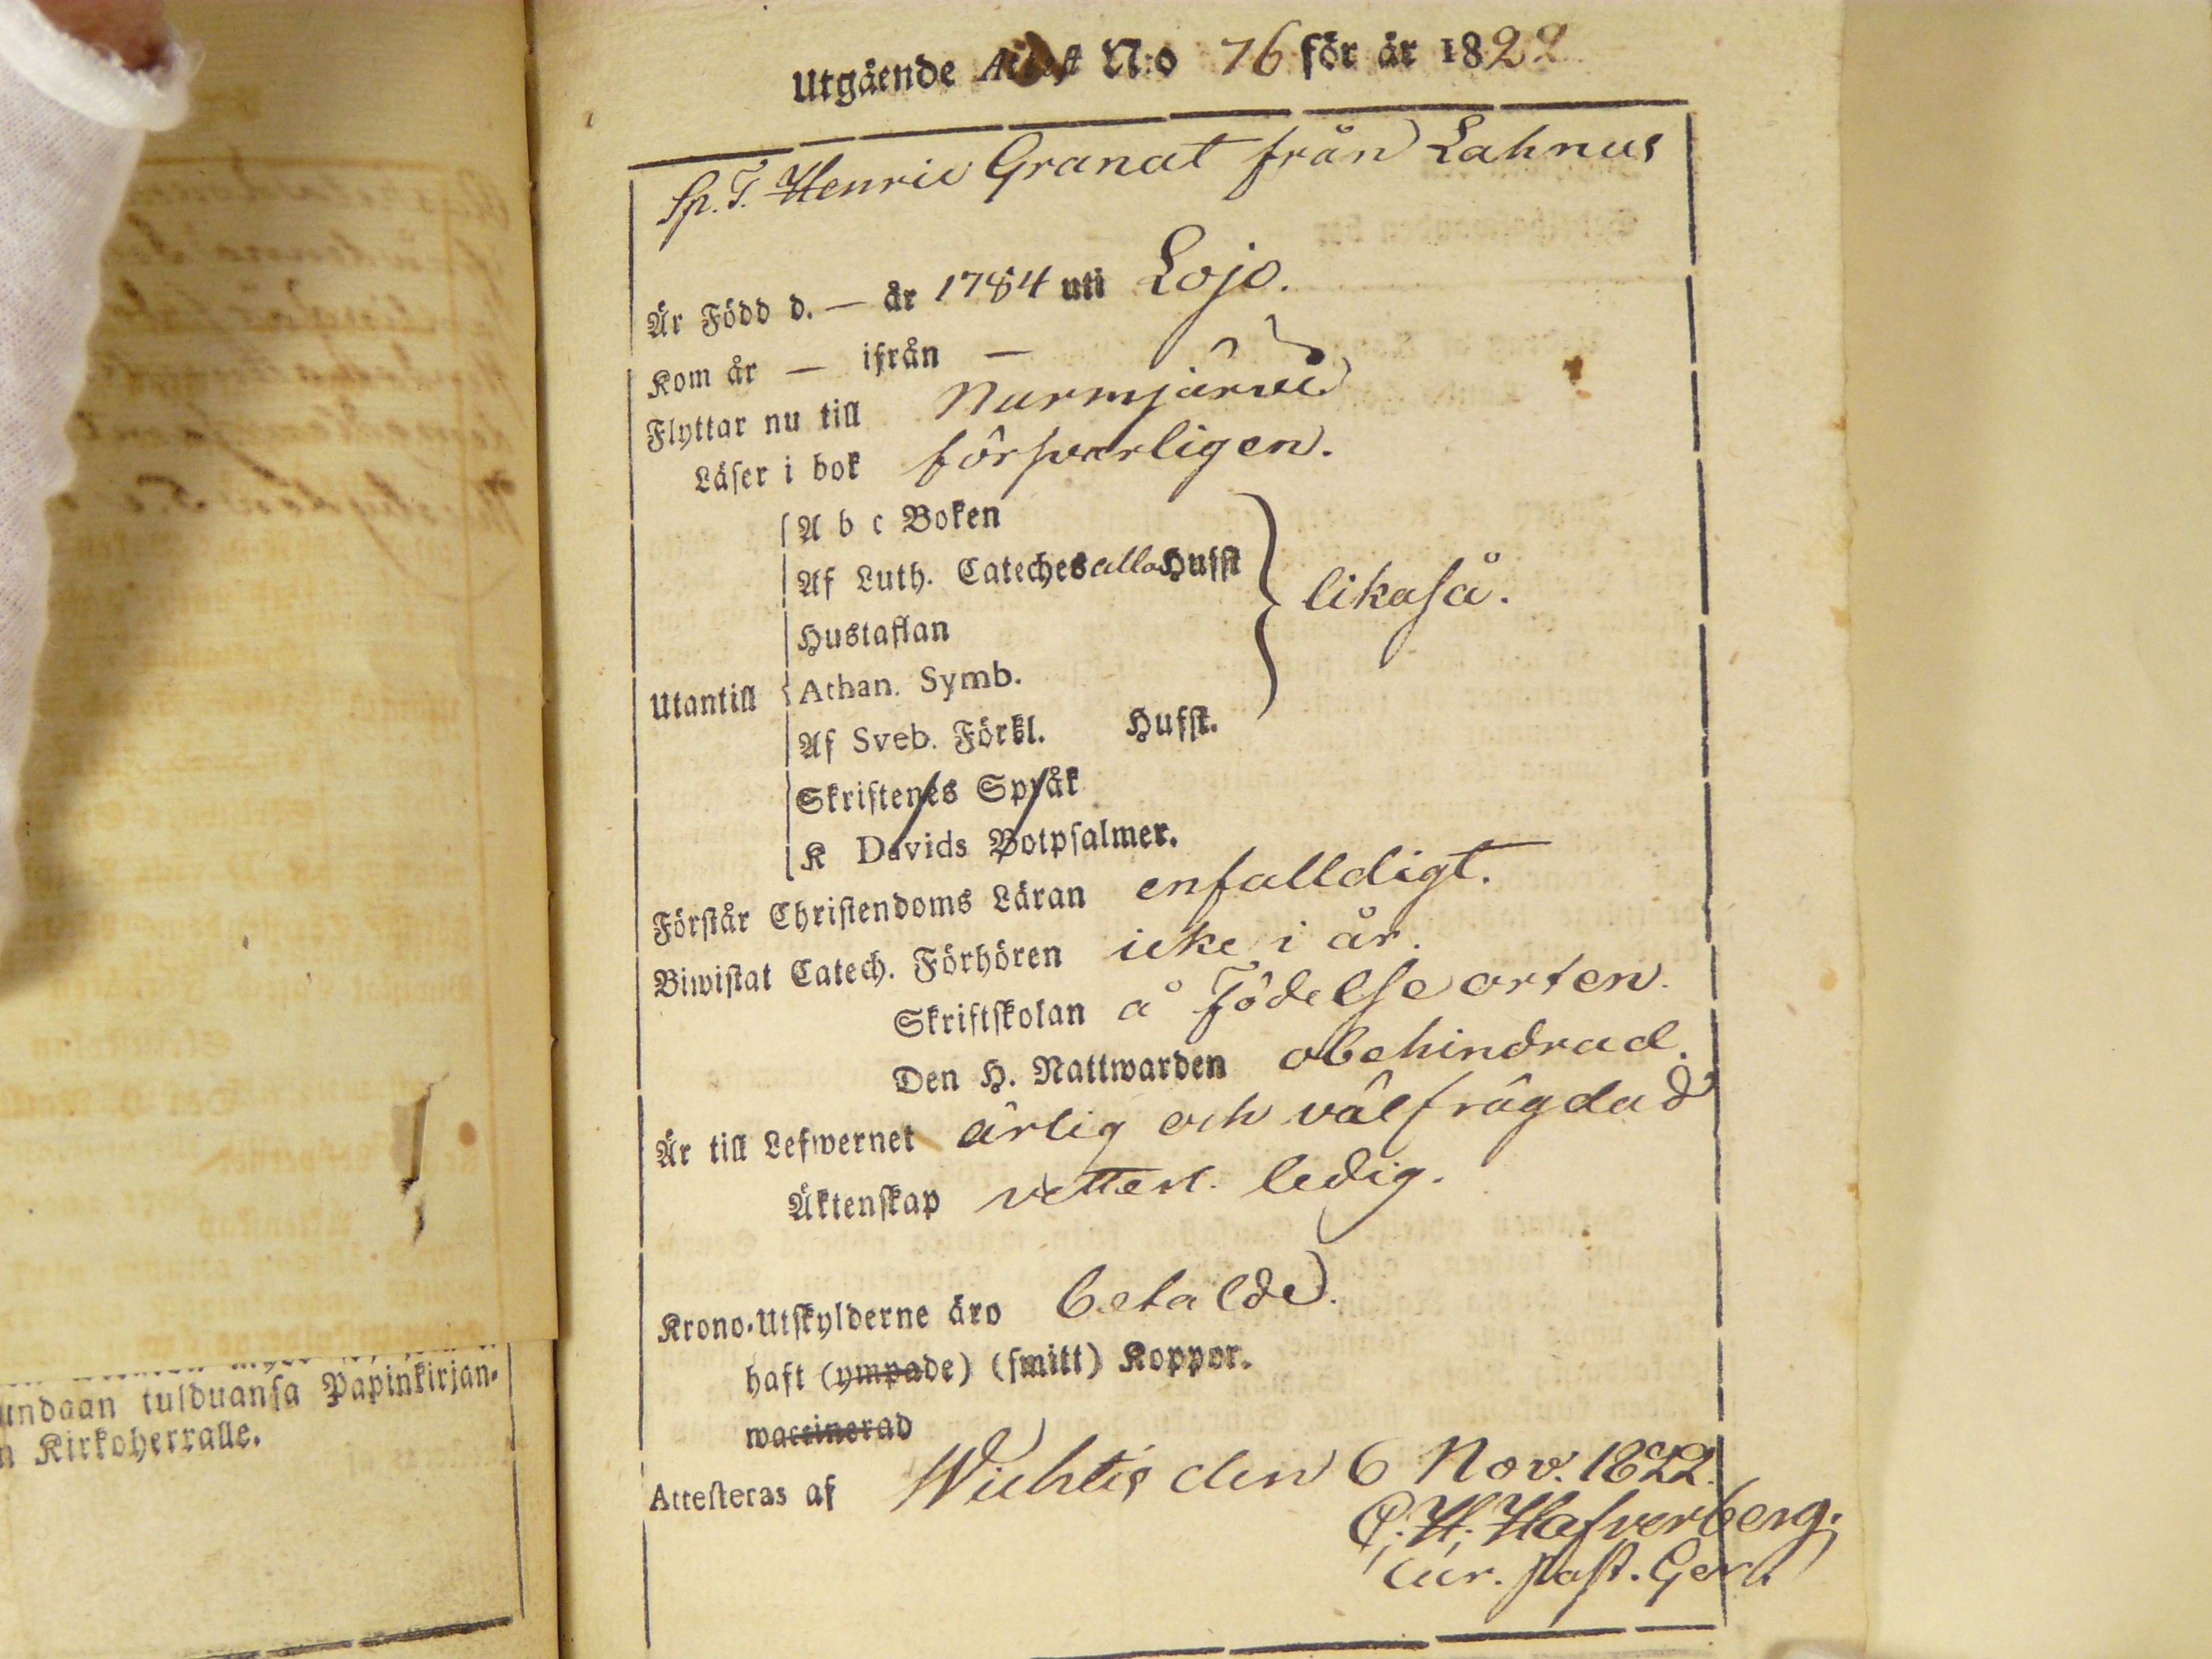 Utgående Attest N:o 76 för år 1822
Sp. T. Henric Granat från Lahnus
Är Född d. — år 1784 uti Lojo.
Kom år — ifrån —
Flyttar nu till Nurmjärvi
Läser i bok försvarligen.
A b c Boken
Af Luth. Cateches alla Hufst
likaså.
Hustaflan
Utantill Athan. Symb.
Af Sveb. Förkl. Hufst.
Skriftenes Språk
K Davids Botpsalmer.
Förstår Christendoms Läran enfalldigt.
Biwistat Catech. Förhören icke i år.
Skriftskolan å Födelse orten.
Den H. Nattwarden obehindrad.
Är till Lefwernet ärlig och välfrägdad
Äktenskap vetterl. ledig.
Krono-Utskylderne äro betalde.
haft (ympade) (smitt) Koppor.
waccinerad
Attesteras af Wichtis den 6 Nov. 1822.
C. H. Hafverberg.
Cur. Past. Ger.
undaan tulduansa Papinkirjan-
n Kirkoherralle.